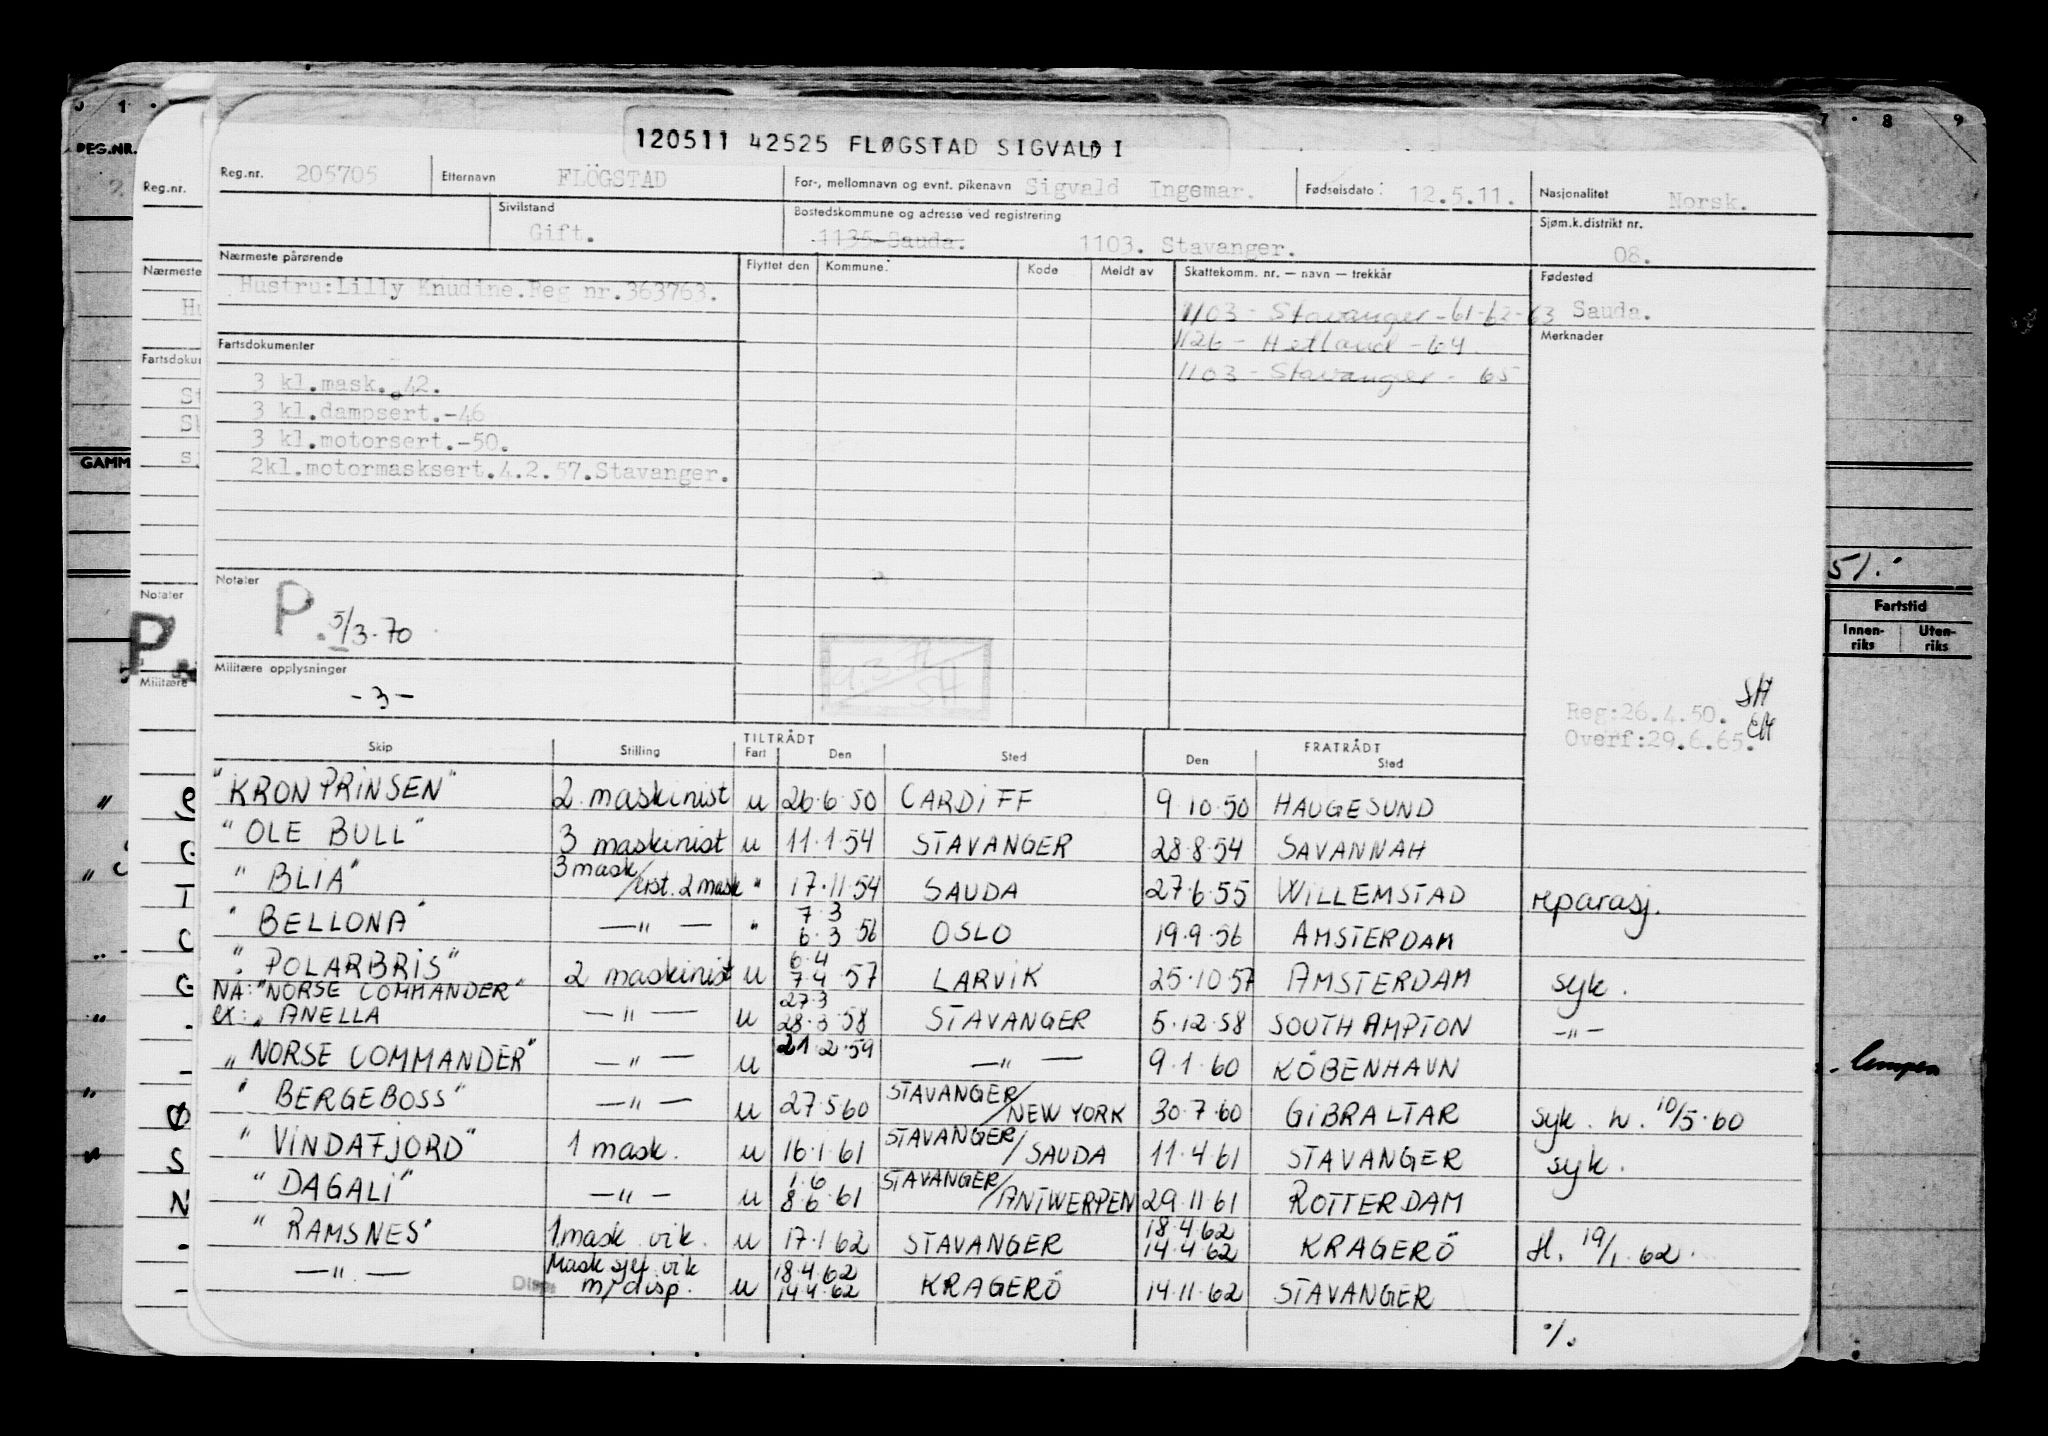 120511 42525 FLØGSTAD SIGVALD I
Reg.nr. 205705 Etternavn FLÖGSTAD For-, mellomnavn og evnt. pikenavn Sigvald Ingemar. Fødselsdato: 12.5.11. Nasjonalitet Norsk.
Sivilstand Gift. Bostedskommune og adresse ved registrering 1135 Sauda. 1103. Stavanger. Sjøm.k.distrikt nr. 08.
Nærmeste pårørende Flyttet den Kommune: Kode Meldt av Skattekomm. nr. — navn — trekkår Fødested
Hustru: Lilly Knudine. Reg nr. 363763. 1103 - Stavanger - 61-62-63 Sauda.
1126 - Hetland - 64 Merknader
Fartsdokumenter 1103 - Stavanger - 65
3 kl.mask. 42.
3 kl.dampsert.-46
3 kl.motorsert.-50.
2kl.motormasksert.4.2.57.Stavanger.
Notater P. 5/3-70
Militære opplysninger
- 3 -
Reg:26.4.50. SH
Overf:29.6.65. EH
TILTRÅDT FRATRÅDT
Skip Stilling Fart Den Sted Den Sted
"KRONPRINSEN" 2. maskinist u 26.6.50 CARDIFF 9.10.50 HAUGESUND
"OLE BULL" 3 maskinist u 11.1.54 STAVANGER 28.8.54 SAVANNAH
"BLIA" 3 mask/erst. 2 mask " 17.11.54 SAUDA 27.6.55 WILLEMSTAD reparasj.
"BELLONA" —"— " 7.3 6.3 56 OSLO 19.9.56 AMSTERDAM
"POLARBRIS" 2 maskinist u 6.4 7.4 57 LARVIK 25.10.57 AMSTERDAM syk.
NA: "NORSE COMMANDER"
ex: "ANELLA —"— u 27.3 28.3.58 STAVANGER 5.12.58 SOUTHAMPTON —"—
"NORSE COMMANDER" —"— u 21.2.59 —"— 9.1.60 KÖBENHAVN
"BERGEBOSS" —"— u 27.5.60 STAVANGER/NEW YORK 30.7.60 GIBRALTAR syk. h. 10/5.60
"VINDAFJORD" 1 mask. u 16.1.61 STAVANGER/SAUDA 11.4.61 STAVANGER syk.
"DAGALI" —"— u 1.6 8.6.61 STAVANGER/ANTWERPEN 29.11.61 ROTTERDAM
"RAMSNES" 1 mask vik. u 17.1.62 STAVANGER 18.4.62 14.4.62 KRAGERÖ H. 19/1.62.
—"— Disp. Mask sjef vik m/disp. u 18.4.62 14.4.62 KRAGERÖ 14.11.62 STAVANGER
%.
REG.NR.
Reg.nr.
Nærmeste
Fartsdoku
GAMM
Notater
P.
Militære
7 . 8 9
51.
Fartstid
Innenriks Utenriks